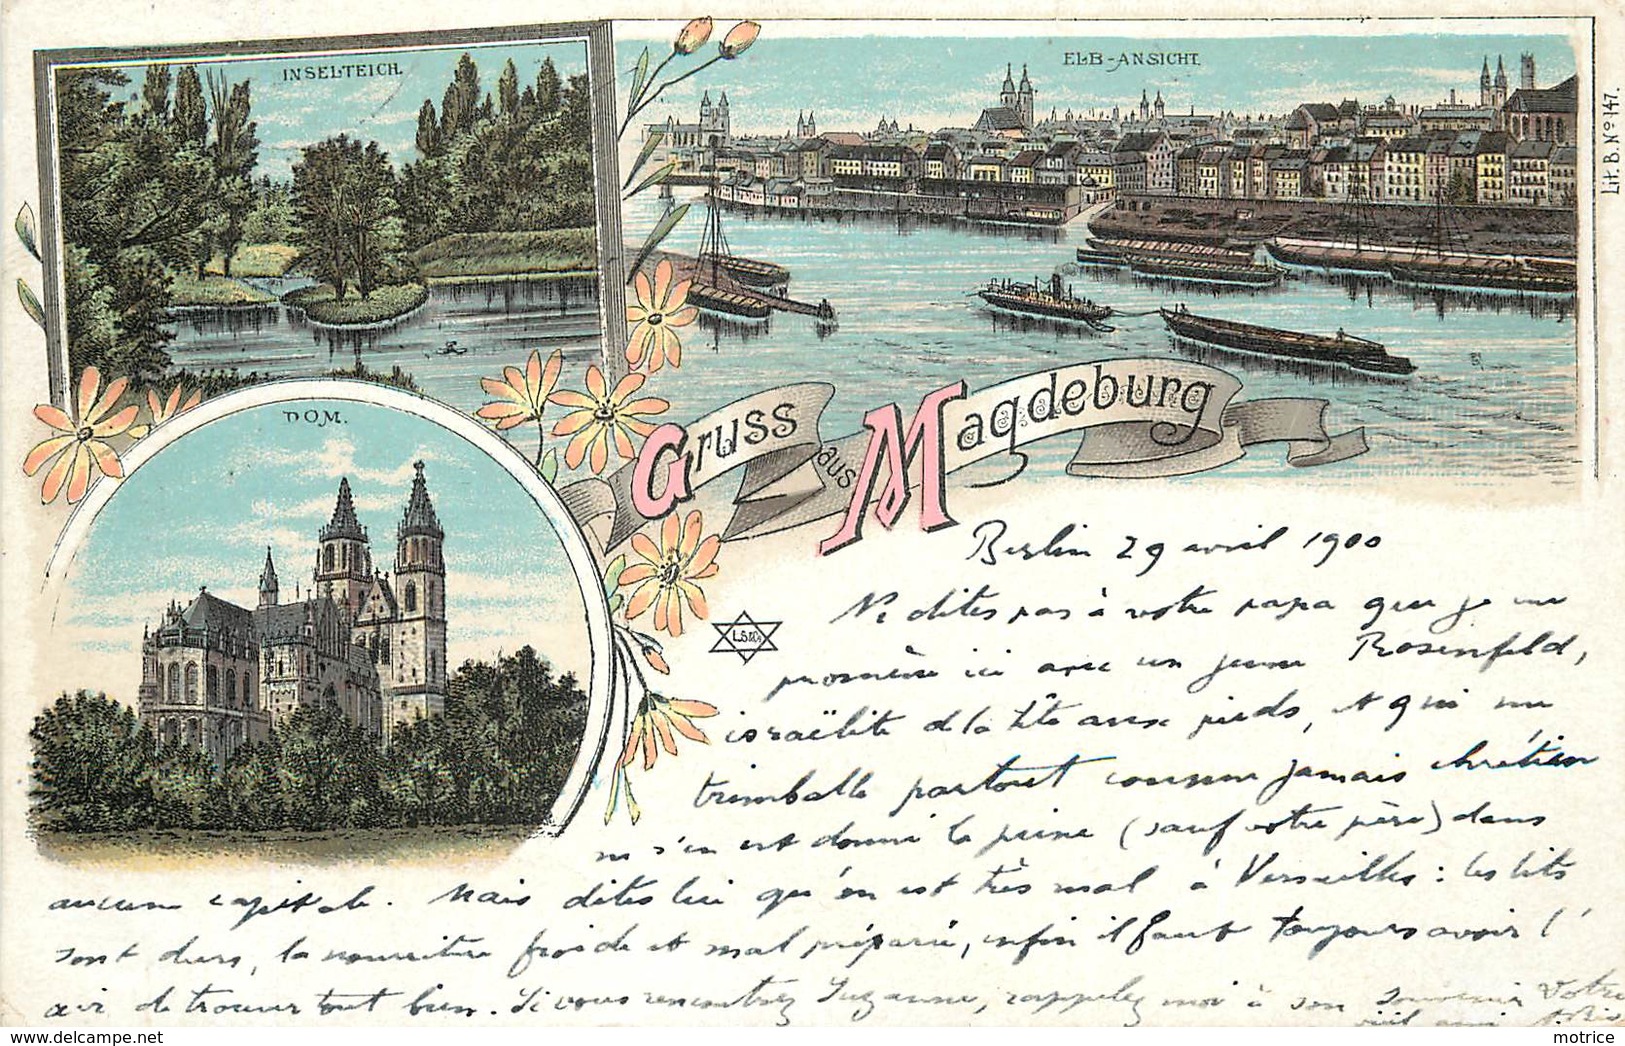 INSELTEICH.
ELB-ANSICHT.
Lit. B. No 147.
DOM.
Gruss
aus
Magdeburg
L.S.&Co
Berlin 29 avril 1900
Ne dites pas à votre papa que je me
promène ici avec un jeune Rosenfeld,
israëlite de la tête aux pieds, et qui me
trimballe partout comme jamais chrétien
ne s'en est donné la peine (sauf votre père) dans
aucune capitale. Mais dites lui qu'on est très mal à Versailles : les lits
sont durs, la nourriture froide et mal préparée, enfin il faut toujours avoir l'
air de trouver tout bien. Si vous rencontrez Suzanne, rappelez moi à son souvenir Votre
vieil ami
matrice